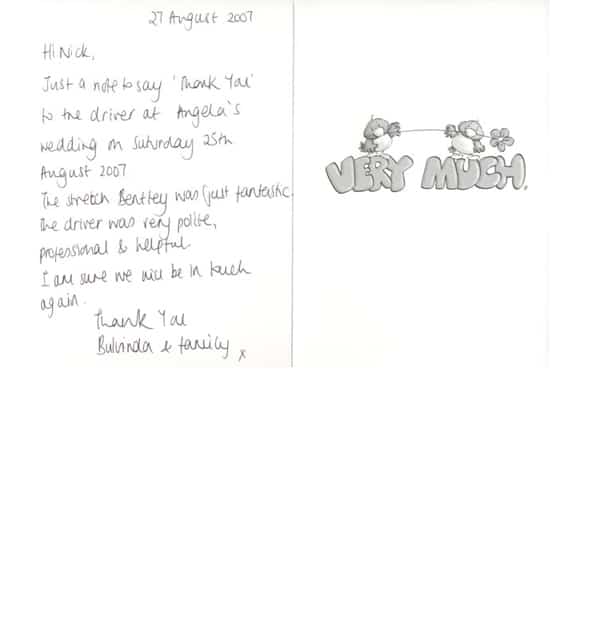 27 August 2007
Hi Nick,
Just a note to say 'Thank You'
to the driver at Angela's
wedding on Saturday 25th
August 2007
The stretch Bentley was just fantastic.
The driver was very polite,
professional & helpful.
I am sure we will be in touch
again.
Thank You
Bulvinda & family x
VERY MUCH.